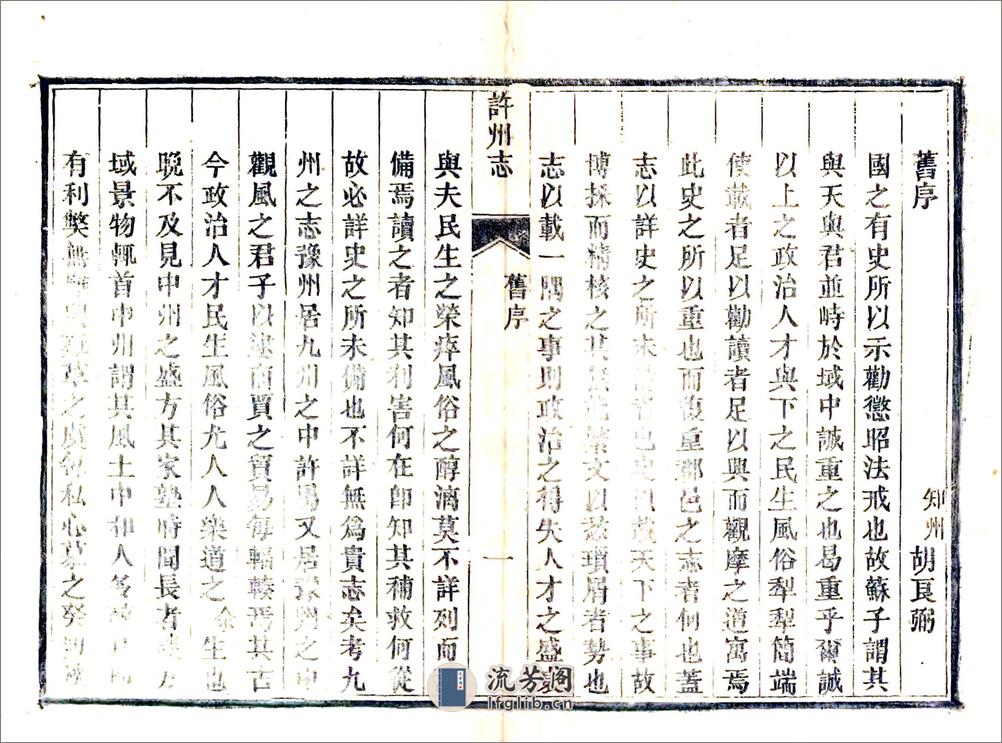 舊序
知州胡良弼
國之有史所以示勸懲昭法戒也故蘇子謂其
與天與君並峙於域中誠重之也曷重乎爾誠
以上之政治人才與下之民生風俗犁犁簡端
使載者足以勸讀者足以興而觀摩之道寓焉
此史之所以重也而復重郡邑之志者何也蓋
志以詳史之所未備者也史以載天下之事故
博採而精核之其繁文以悉瑣屑者勢也
志以載一隅之事則政治之得失人才之盛衰
許州志
舊序
一
與夫民生之榮瘁風俗之醇漓莫不詳列而
備焉讀之者知其利害何在卽知其補救何從
故必詳史之所未備也不詳無爲貴志矣考九
州之志豫州居九州之中許昌又居豫州之中
觀風之君子以逮商賈之貿易每輻輳焉其古
今政治人才民生風俗尤人人樂道之余生也
晩不及見中州之盛方其家塾時聞長者談方
域景物輒首中州謂其風土中和人
有利獘無之私心慕之癸
流芳阁
lfglib.cn